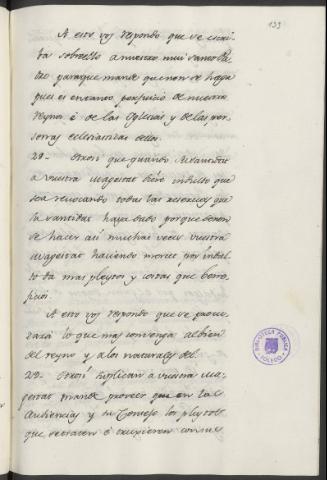 139
A esto vos respondo que se escri-
ba sobrello a nuestro mui santo Pa-
dre para que mande que non se haga
pues es en tanto perjuicio de nuestro
reyno è de las Iglesias y de las per-
sonas eclesiasticas dellos.
21- Otrosi que quando su santidat
a vuestra magestat diere indulto que
sea revocando todas las
la santidat haya dado porque
de hacer asi muchas veces vuestra
magestat haciendo merced por indul-
to da mas pleytos y costas que bene-
ficios.
A esto vos respondo que se provee-
rá lo que mas convenga al bien
del reyno y a los naturales del.
22- Otrosi suplican à vuestra ma-
gestat mande proveer que en las
Audiencias y su Consejo los pleytos
que se traten è
BIBLIOTECA PUBLICA
TOLEDO